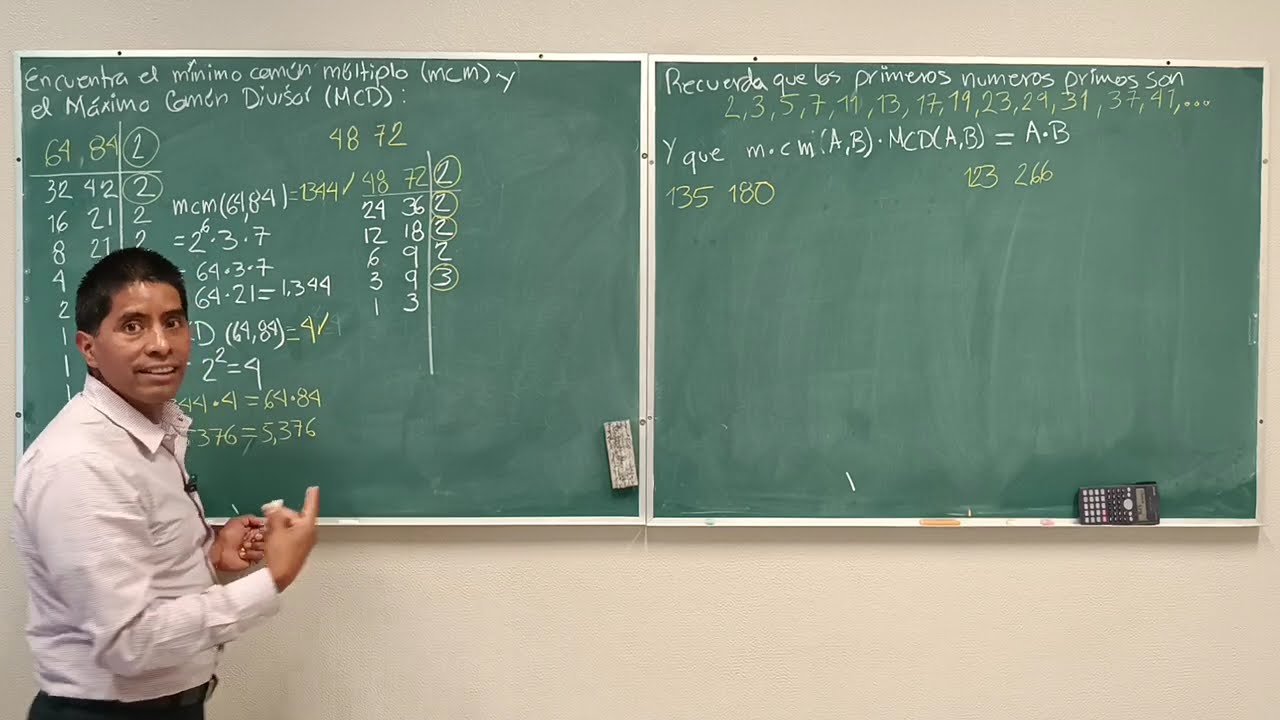 Encuentra el mínimo común múltiplo (mcm) y
el Máximo Común Divisor (MCD):
64, 84 2
32 42 2
16 21 2
8 21 2
4
2
1
1
1
mcm(64,84)=1344/
=2⁶·3·7
= 64·3·7
64·21=1,344
D (64,84)=4/4
2²=4
44·4=64·84
376=5,376
48 72
48 72 2
24 36 2
12 18 2
6 9 2
3 9 3
1 3
Recuerda que los primeros numeros primos son
2,3,5,7,11,13,17,19,23,29,31,37,41,...
Y que m.cm(A,B)·MCD(A,B)=A·B
135 180
123 266